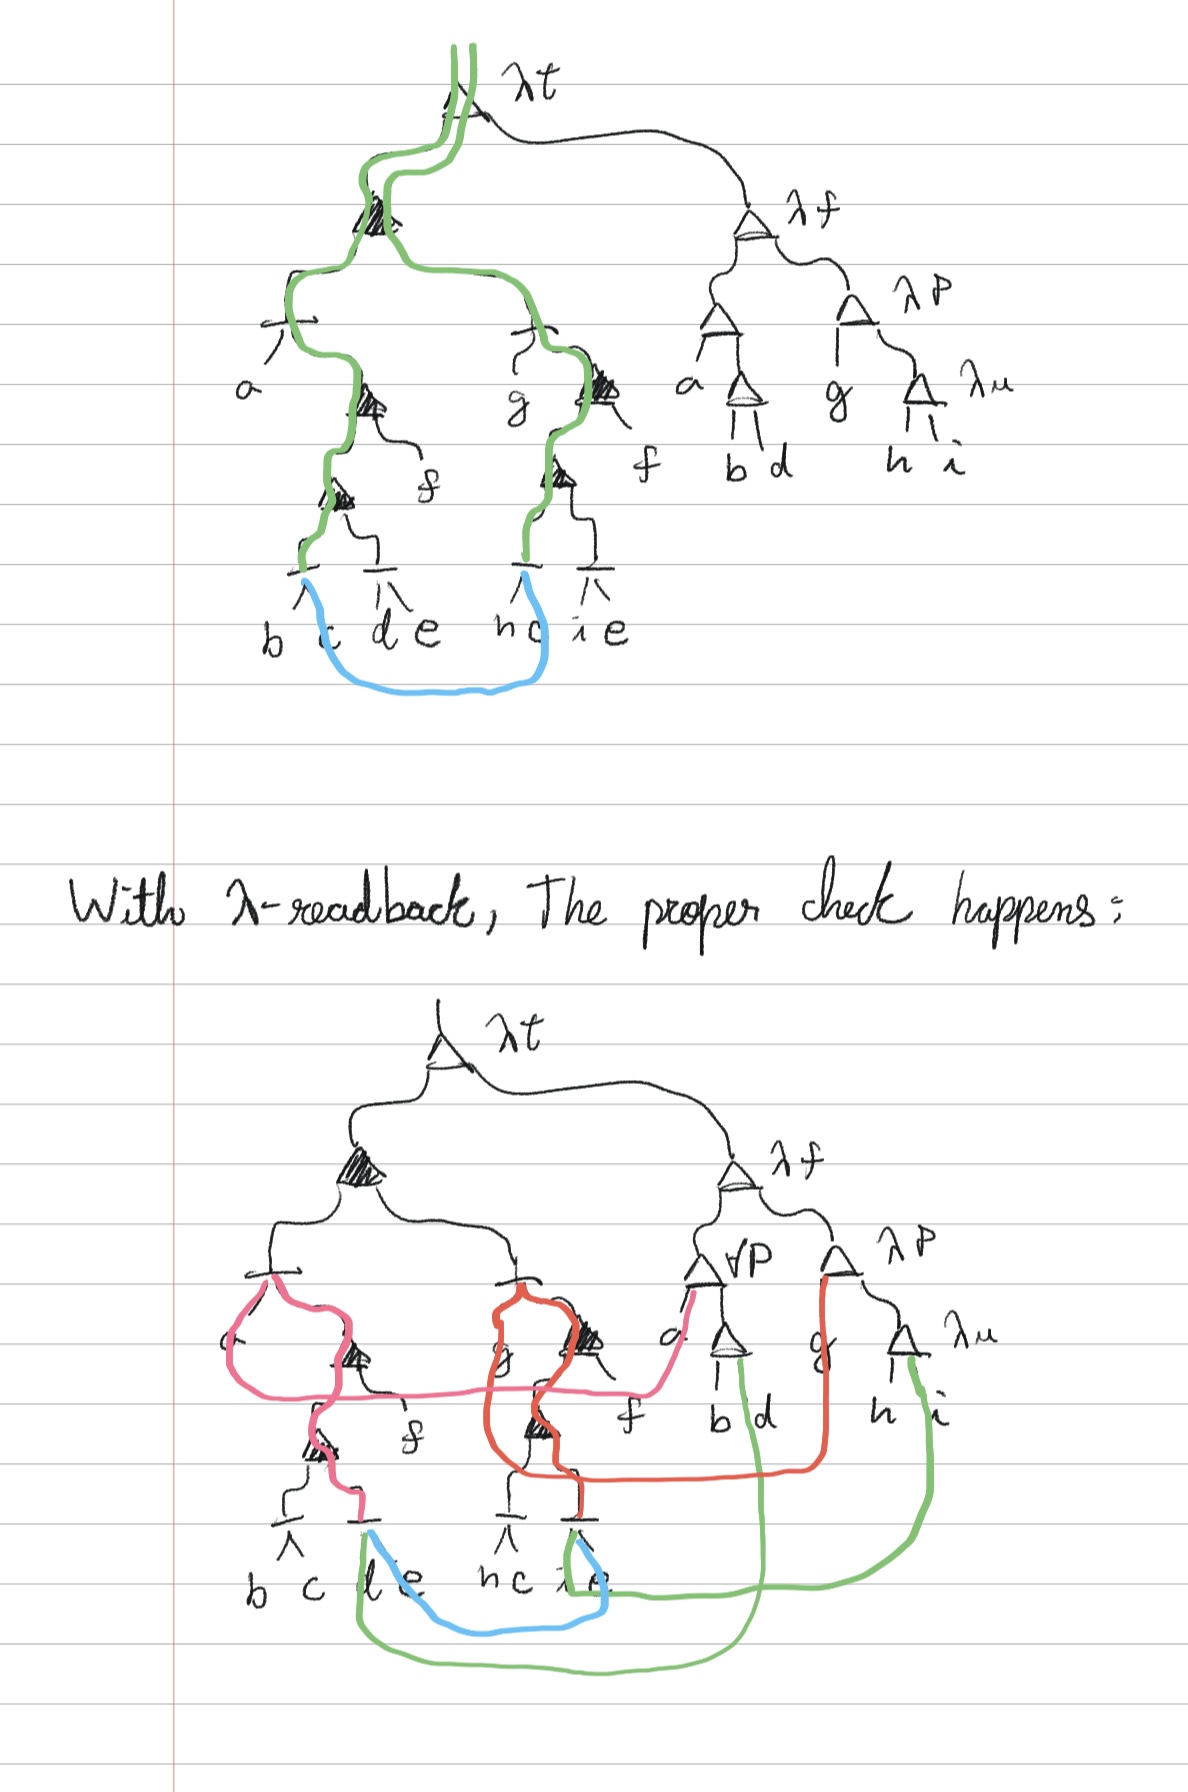 λt
λf
λP
a g a g λu
f f b d h i
b c d e h c i e
With λ-readback, The proper check happens:
λt
λf
∀P λP
a g a g λu
f f b d h i
b c d e h c i e